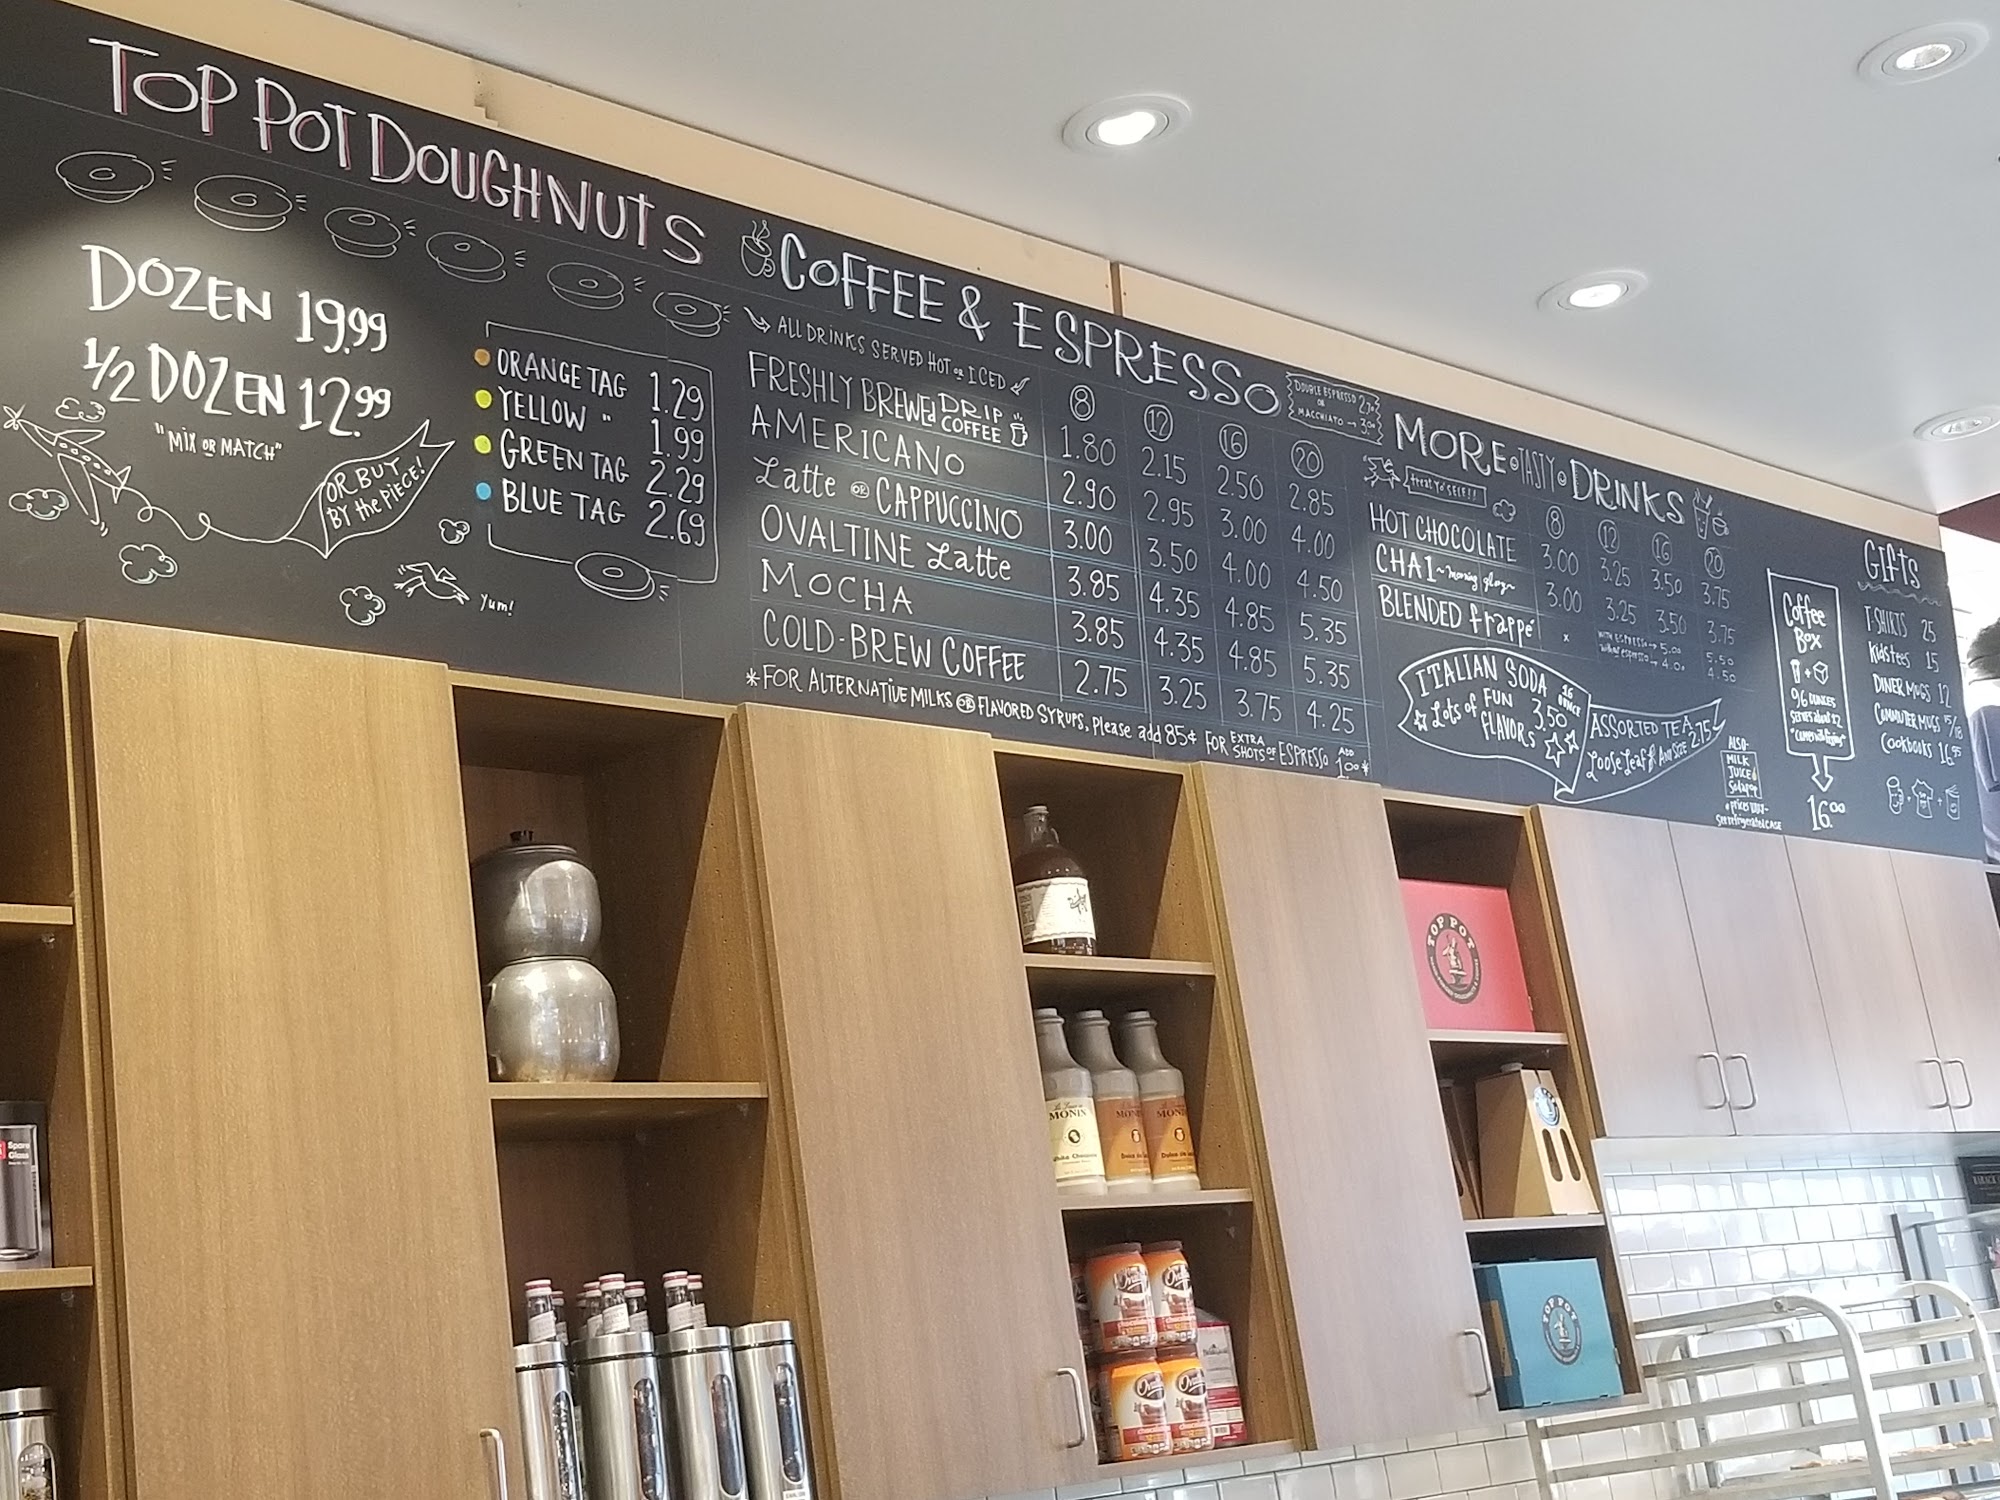 TOP POT DOUGHNUTS
DOZEN 19.99
1/2 DOZEN 12.99
"MIX OR MATCH"
OR BUY
BY the PIECE!
Yum!
ORANGE TAG 1.29
YELLOW " 1.99
GREEN TAG 2.29
BLUE TAG 2.69
COFFEE & ESPRESSO
ALL DRINKS SERVED HOT or ICED
DOUBLE ESPRESSO
OR
MACCHIATO
8 12 16 20
FRESHLY BREWEd DRIP COFFEE 1.80 2.15 2.50 2.85
AMERICANO 2.90 2.95 3.00 4.00
Latte OR CAPPUCCINO 3.00 3.50 4.00 4.50
OVALTINE Latte 3.85 4.35 4.85 5.35
MOCHA 3.85 4.35 4.85 5.35
COLD-BREW COFFEE 2.75 3.25 3.75 4.25
*FOR ALTERNATIVE MILKS OR FLAVORED SYRUPS, Please add 85¢ FOR EXTRA SHOTS OF ESPRESSO ADD 1.00*
MORE TASTY DRINKS
treat yo' SELF!!
8 12 16 20
HOT CHOCOLATE 3.00 3.25 3.50 3.75
CHAI ~morning glory~ 3.00 3.25 3.50 3.75
BLENDED frappé x WITH ESPRESSO → 5.00 5.50
without espresso → 4.00 4.50
ITALIAN SODA 16 OUNCE
Lots of FUN 3.50
FLAVORS
ASSORTED TEA
Loose Leaf ANY SIZE 2.75
ALSO-
MILK
JUICE
Sodapop
*prices vary-
See refrigerated CASE
Coffee
Box
96 OUNCES
SERVES about 12
16.00
GIFTS
T-SHIRTS 25
kids tees 15
DINER MUGS 12
COMMUTER MUGS 15/18
COOKBOOKS 16.95
TOP POT
MONIN
MONIN
MONIN
TOP POT
Spare
Glass